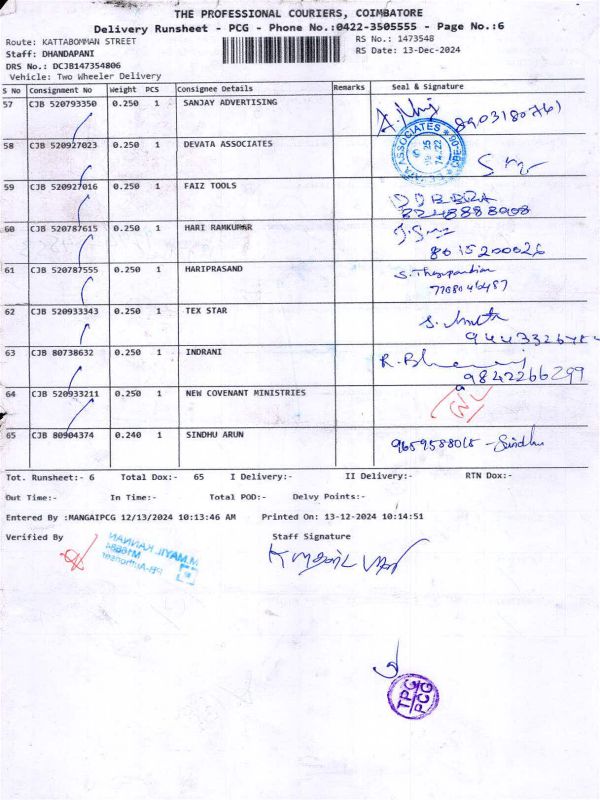 THE PROFESSIONAL COURIERS, COIMBATORE
Delivery Runsheet - PCG - Phone No.:0422-3505555 - Page No.:6
Route: KATTABOMMAN STREET
RS No.: 1473548
Staff: DHANDAPANI
RS Date: 13-Dec-2024
DRS No.: DCJB147354806
Vehicle: Two Wheeler Delivery
S No Consignment No Weight PCS Consignee Details Remarks Seal & Signature
57 CJB 520793350 0.250 1 SANJAY ADVERTISING
8903180761
58 CJB 520927023 0.250 1 DEVATA ASSOCIATES
ASSOCIATES
59 CJB 520927016 0.250 1 FAIZ TOOLS
60 CJB 520787615 0.250 1 HARI RAMKUMAR
8015200026
61 CJB 520787555 0.250 1 HARIPRASAND
7708046487
62 CJB 520933343 0.250 1 TEX STAR
63 CJB 80738632 0.250 1 INDRANI
9842266299
64 CJB 520933211 0.250 1 NEW COVENANT MINISTRIES
65 CJB 80904374 0.240 1 SINDHU ARUN
9659588015 - Sindhu
Tot. Runsheet:- 6 Total Dox:- 65 I Delivery:- II Delivery:- RTN Dox:-
Out Time:- In Time:- Total POD:- Delvy Points:-
Entered By :MANGAIPCG 12/13/2024 10:13:46 AM Printed On: 13-12-2024 10:14:51
Verified By Staff Signature
M.MAYIL KANNAN
TPC
PCG